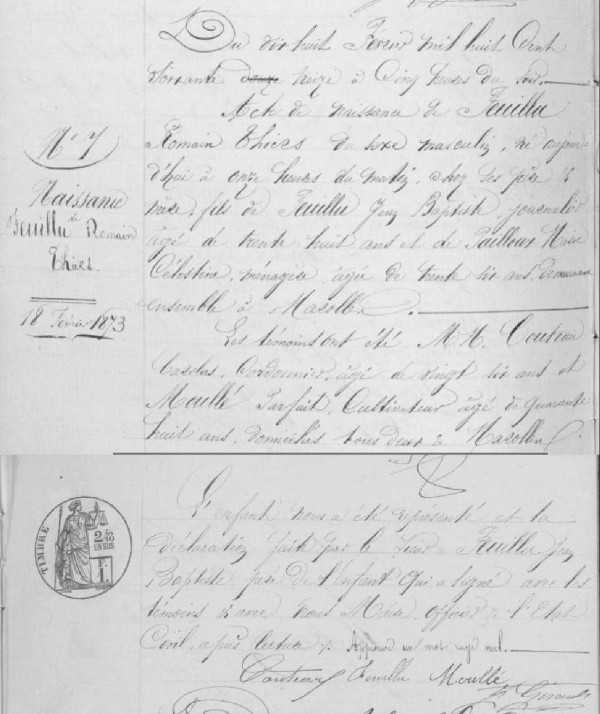 Du dix huit Fevrier mil huit Cent
Soixante deux treize à Cinq heures du soir.
Acte de naissance de Feuillu
Romain Thiers du sexe masculin, né aujour-
d'hui à onze heures du matin, chez ses père &
mère, fils de Feuillu Jean Baptiste, journalier
âgé de trente huit ans et de Pailloux Marie
Célestine, ménagère, âgée de trente six ans, demeurant
ensemble à Mazolles.
Les témoins ont été M.M. Couteau
Cordonnier, âgé de vingt six ans et
Moullé Parfait, Cultivateur âgé de Quarante
huit ans, domiciliés tous deux à Mazolles.
N° 7
Naissance
de
Feuillu Romain
Thiers.
18 Février 1873
L'enfant nous a été représenté et la
déclaration faite par le sieur Feuillu Jean
Baptiste, père de l'enfant qui a signé avec les
témoins & avec nous Maire, officier de l'Etat
Civil, après lecture. Approuvé un mot rayé nul.
Couteau Feuillu Moullé
Girault
TIMBRE
2/10
EN SUS
F.
1